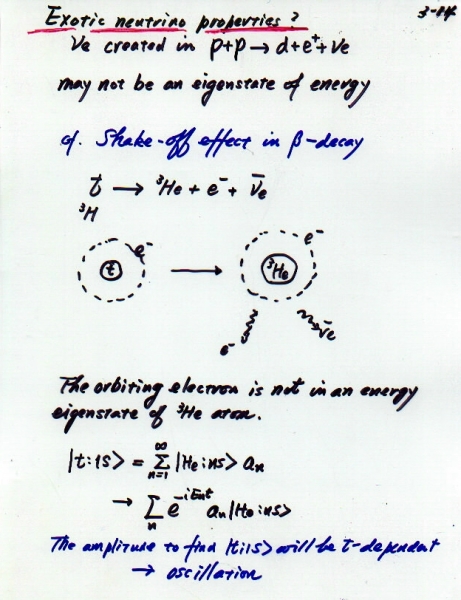 Exotic neutrino properties?
3-14
νe created in p+p → d+e⁺+νe
may not be an eigenstate of energy
cf. Shake-off effect in β-decay
t → ³He + e⁻ + ν̄e
³H
e⁻
e⁻
t
³He
e⁻
ν̄e
The orbiting electron is not in an energy
eigenstate of ³He atom.
|t:1s> = Σ_{n=1}^{∞} |He:ns> aₙ
→ Σ_n e^{-iEnt} aₙ|He:ns>
The amplitude to find |t:1s> will be t-dependent
→ oscillation